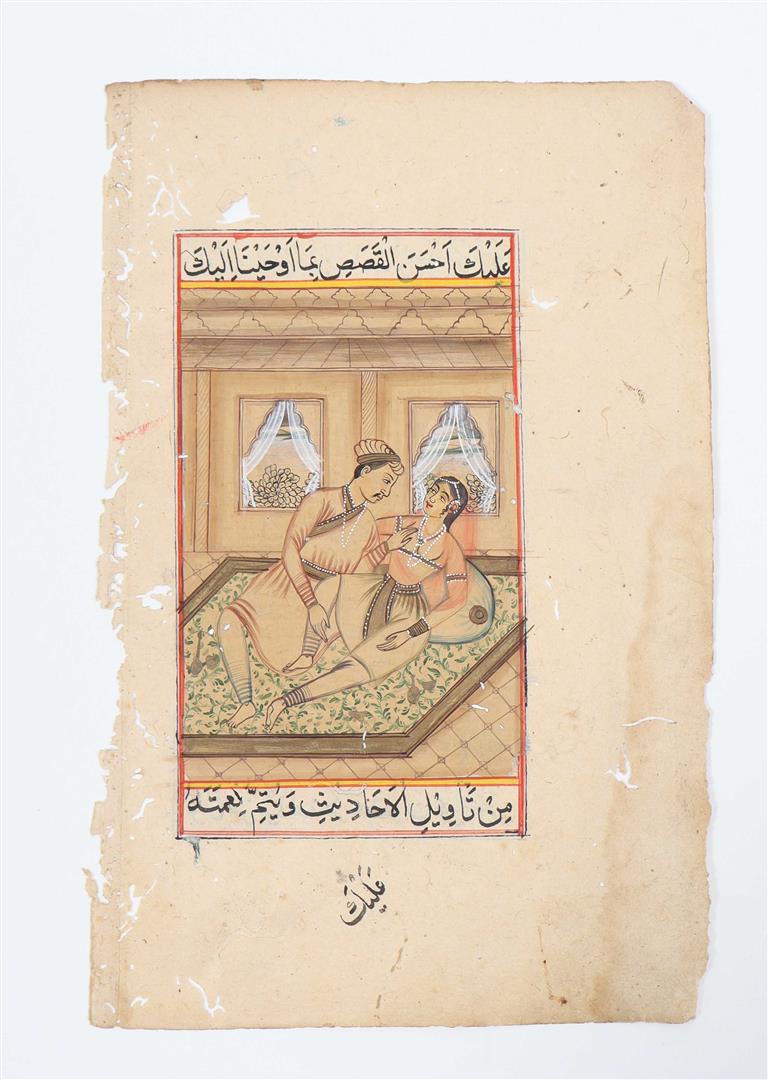 عَلَيْكَ اَحْسَنَ الْقَصَصِ بِمَا اَوْحَيْنَا اِلَيْكَ
مِنْ تَاْوِيْلِ الْاَحَادِيْثِ وَيُتِمُّ نِعْمَتَهٗ
عَلَيْكَ